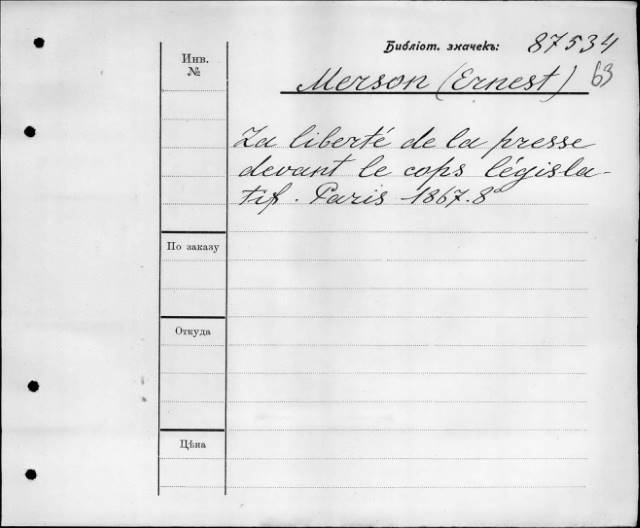 Библіот. значекъ: 87534
Инв.
№
Merson (Ernest) 63
La liberté de la presse
devant le cops législa-
tif. Paris 1867. 8°
По заказу
Откуда
Цѣна